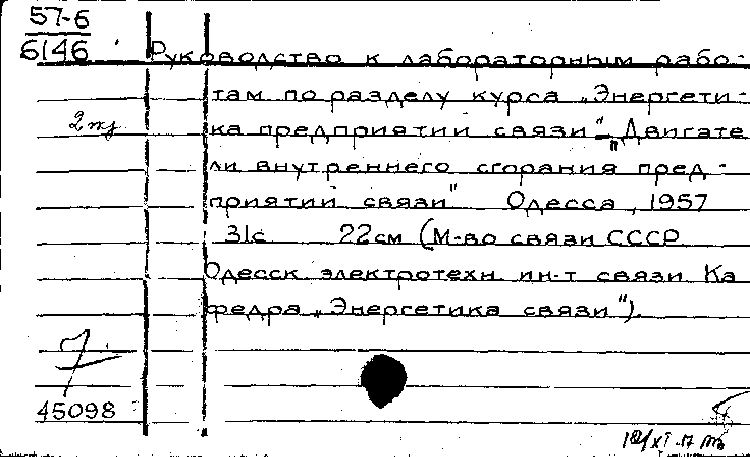 57-6
6146
Руководство к лабораторным рабо-
там по разделу курса „Энергети-
2
ка предприятий связи" „Двигате
ли внутреннего сгорания пред-
приятий связи" Одесса, 1957
31с 22см (М-во связи СССР
Одесск электротехн ин-т связи Ка
федра „Энергетика связи").
45098